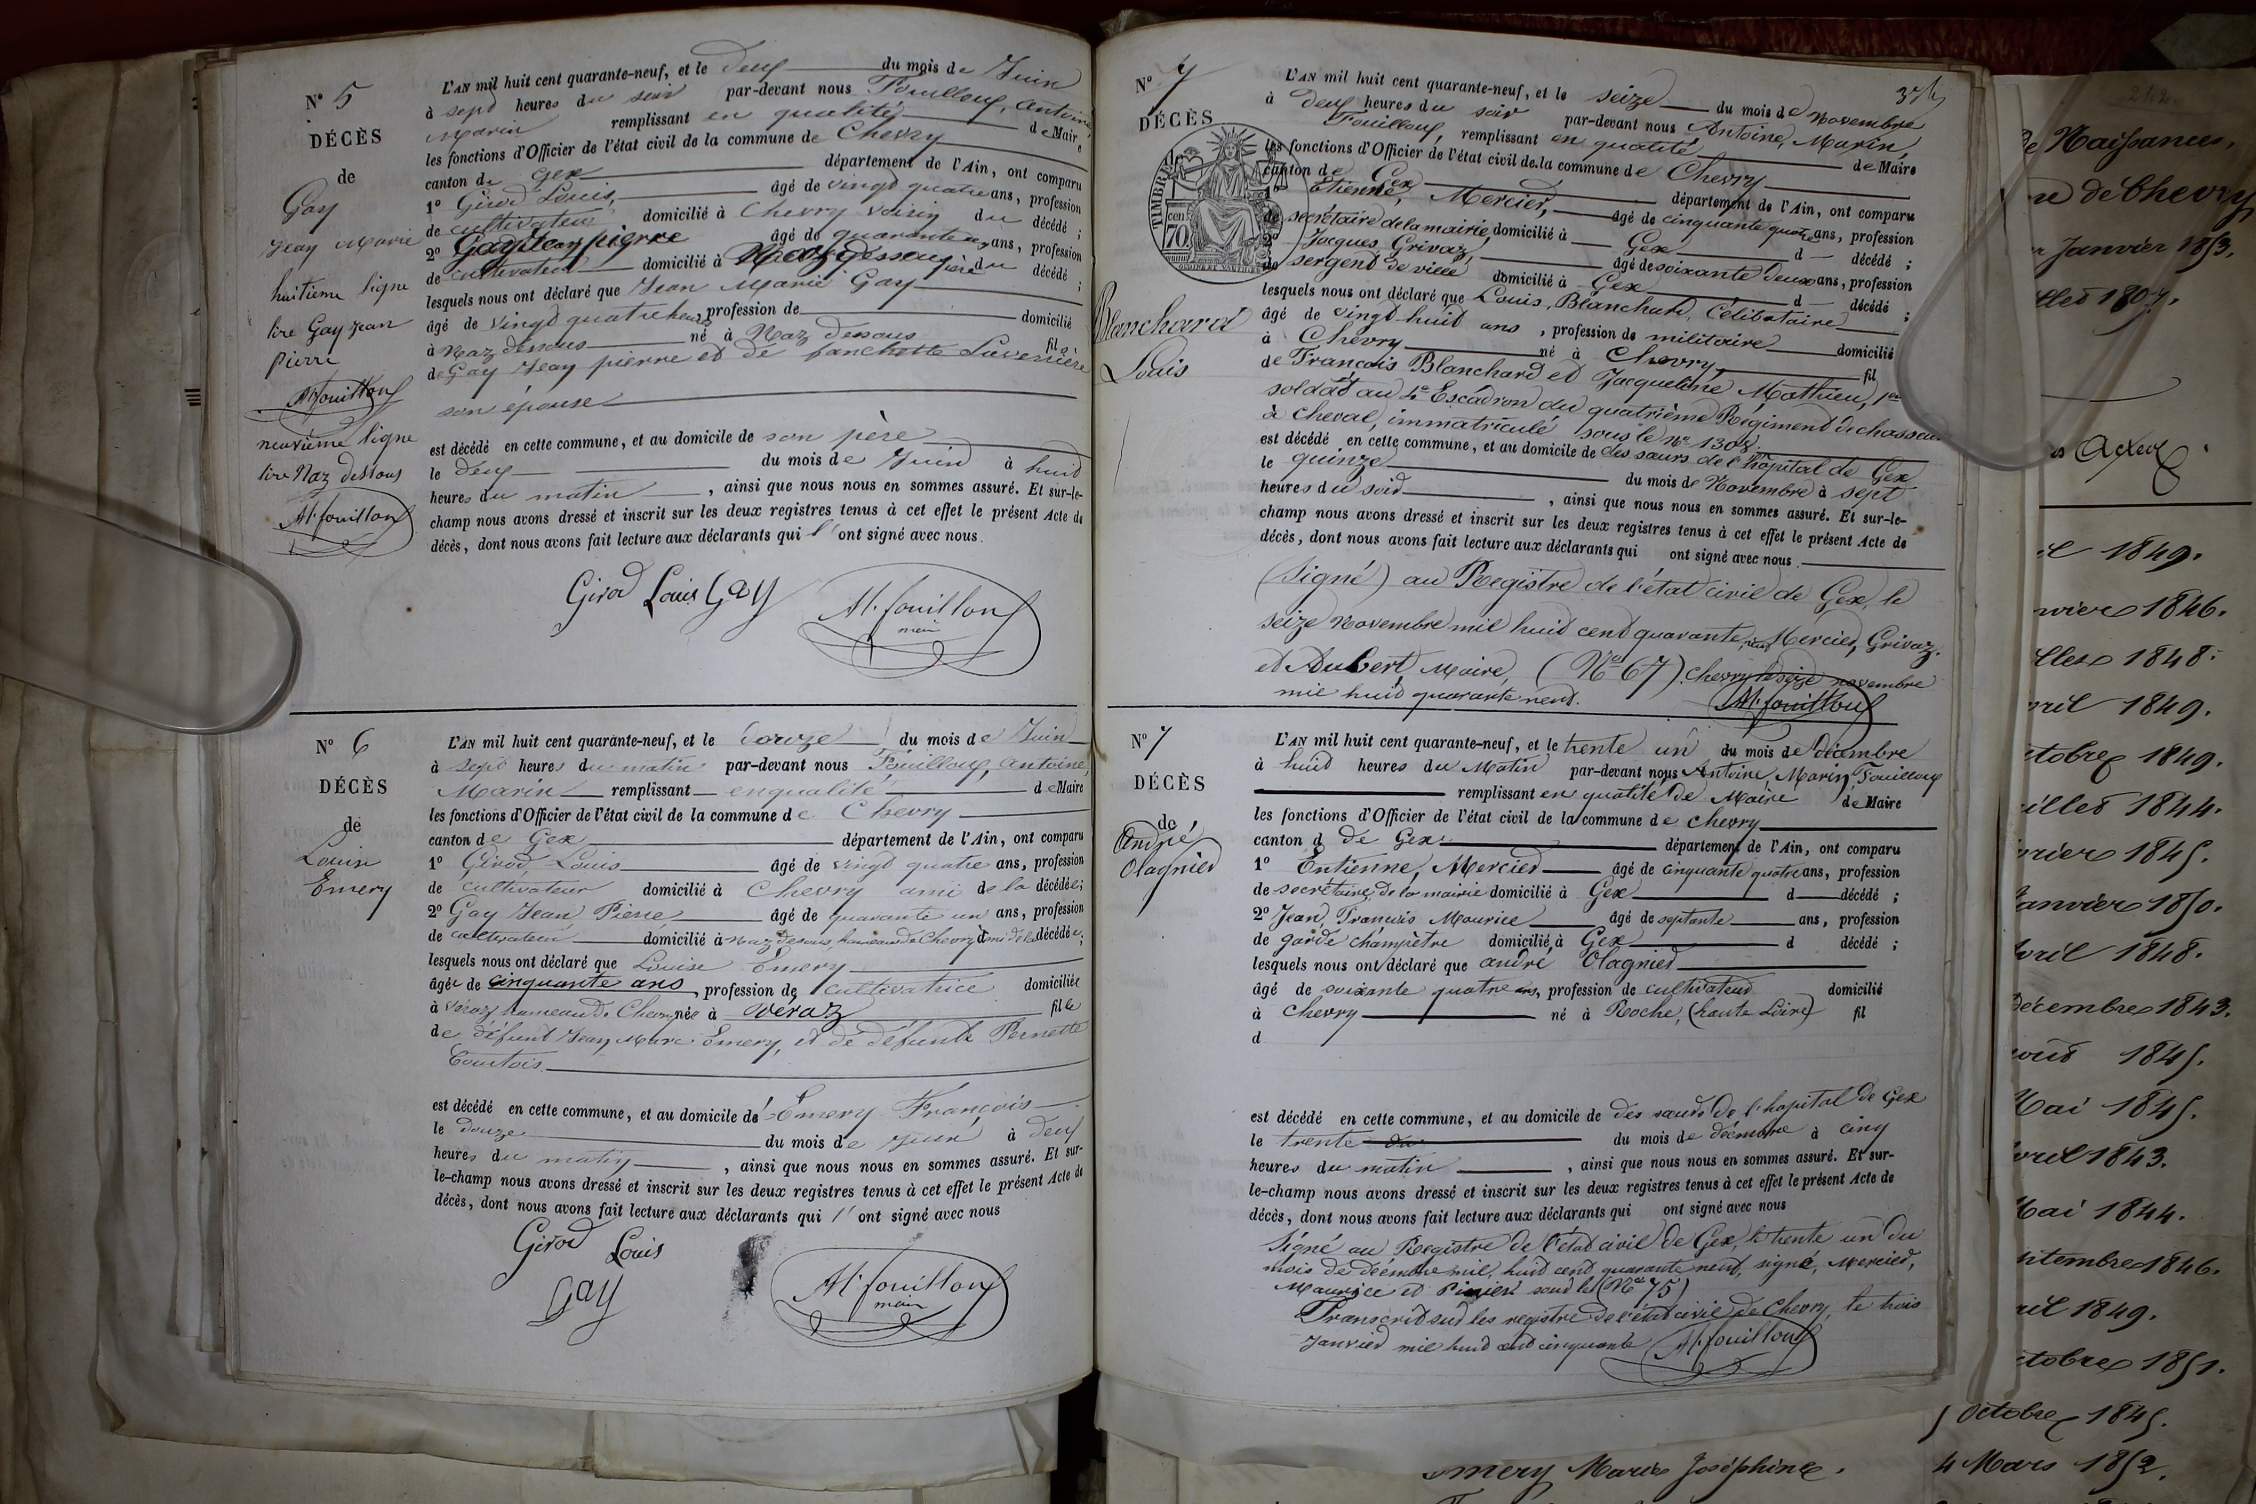 N° 5
DÉCÈS
de
Gay
Jean Marie
huitieme ligne
lire Gay jean
pierre
At fouilloux
neuvième ligne
lire Naz dessous
At fouilloux
L'AN mil huit cent quarante-neuf, et le deux du mois de Juin
à sept heures du soir par-devant nous Fouilloux, Antoine
Marin remplissant en qualité de Maire
les fonctions d'Officier de l'état civil de la commune de Chevry
canton de Gex département de l'Ain, ont comparu
1° Girod Louis, âgé de vingt quatre ans, profession
de cultivateur domicilié à Chevry voisin du décédé ;
2° Gay Jean pierre âgé de quarante un ans, profession
de cultivateur domicilié à Naz dessous père du décédé ;
lesquels nous ont déclaré que Jean Marie Gay
âgé de vingt quatre heures, profession de domicilié
à Naz dessous né à Naz dessous fils
de Gay Jean pierre et de fanchette Laverrière
son épouse
est décédé en cette commune, et au domicile de son père
le deux du mois de Juin à huit
heures du matin , ainsi que nous nous en sommes assuré. Et sur-le-
champ nous avons dressé et inscrit sur les deux registres tenus à cet effet le présent Acte de
décès, dont nous avons fait lecture aux déclarants qui l' ont signé avec nous.
Girod Louis Gay At fouilloux
maire
N° 6
DÉCÈS
de
Louise
Emery
L'AN mil huit cent quarante-neuf, et le douze du mois de Juin
à sept heures du matin par-devant nous Fouilloux, Antoine
Marin remplissant en qualité de Maire
les fonctions d'Officier de l'état civil de la commune de Chevry
canton de Gex département de l'Ain, ont comparu
1° Girod Louis âgé de vingt quatre ans, profession
de cultivateur domicilié à Chevry ami de la décédée ;
2° Gay Jean Pierre âgé de quarante un ans, profession
de cultivateur domicilié à Naz dessous, hameau de Chevry ami de la décédée ;
lesquels nous ont déclaré que Louise Emery
âgée de cinquante ans, profession de cultivatrice domiciliée
à Véraz hameau de Chevry née à Véraz fille
de défunt Jean Marc Emery, et de défunte Pernette
Courtois
est décédé en cette commune, et au domicile de Emery François
le douze du mois de Juin à deux
heures du matin , ainsi que nous nous en sommes assuré. Et sur-
le-champ nous avons dressé et inscrit sur les deux registres tenus à cet effet le présent Acte de
décès, dont nous avons fait lecture aux déclarants qui l' ont signé avec nous
Girod Louis
Gay At fouilloux
maire
N° 7
DÉCÈS
TIMBRE
cen
70
Blanchard
Louis
L'AN mil huit cent quarante-neuf, et le seize du mois de Novembre
à deux heures du soir par-devant nous Antoine, Marin,
Fouilloux, remplissant en qualité de Maire
les fonctions d'Officier de l'état civil de la commune de Chevry
canton de Gex département de l'Ain, ont comparu
1° Etienne, Mercier, âgé de cinquante quatre ans, profession
de secrétaire de la mairie, domicilié à Gex d décédé ;
2° Jacques Grivaz, âgé de soixante deux ans, profession
de sergent de ville domicilié à Gex d décédé ;
lesquels nous ont déclaré que Louis, Blanchard, Célibataire
âgé de vingt huit ans , profession de militaire domicilié
à Chevry né à Chevry fil
de François Blanchard et Jacqueline Mathieu,
soldat au 4e Escadron du quatrième Régiment de chasseurs
à cheval, immatriculé sous le N° 1308.
est décédé en cette commune, et au domicile de des sœurs de l'hôpital de Gex
le quinze du mois de Novembre à sept
heures du soir , ainsi que nous nous en sommes assuré. Et sur-le-
champ nous avons dressé et inscrit sur les deux registres tenus à cet effet le présent Acte de
décès, dont nous avons fait lecture aux déclarants qui ont signé avec nous.
(Signé) au Registre de l'état civil de Gex, le
seize novembre mil huit cent quarante neuf, Mercier, Grivaz.
et Aubert, Maire, (N° 67). Chevry le seize novembre
mil huit quarante neuf. At fouilloux
N° 7
DÉCÈS
de
André
Olagnier
L'AN mil huit cent quarante-neuf, et le trente un du mois de décembre
à huit heures du Matin par-devant nous Antoine Marin, Fouilloux
remplissant en qualité de Maire de Maire
les fonctions d'Officier de l'état civil de la commune de chevry
canton d de Gex département de l'Ain, ont comparu
1° Entienne, Mercier âgé de cinquante quatre ans, profession
de secrétaire de la mairie domicilié à Gex d décédé ;
2° Jean François Maurice âgé de septante ans, profession
de garde champêtre domicilié à Gex d décédé ;
lesquels nous ont déclaré que andré Olagnier
âgé de soixante quatre ans, profession de cultivateur domicilié
à Chevry né à Roche, (haute Loire) fil
d
est décédé en cette commune, et au domicile de des sœurs de l'hopital de Gex
le trente du mois de décembre à cinq
heures du matin , ainsi que nous nous en sommes assuré. Et sur-
le-champ nous avons dressé et inscrit sur les deux registres tenus à cet effet le présent Acte de
décès, dont nous avons fait lecture aux déclarants qui ont signé avec nous
Signé au Registre de l'état civil de Gex, le trente un du
mois de décembre mil, huit cent quarante neuf, signé, Mercier,
Maurice et sous le (N° 75)
Transcrit sur les registre de l'état civil de Chevry, le trois
Janvier mil huit cent cinquante At fouilloux
de Naissances,
de Chevry
Janvier 1853.
1807.
1849.
1846.
1848.
1849.
octobre 1849.
1844.
1845.
Janvier 1850.
avril 1848.
décembre 1843.
1845.
Mai 1845.
avril 1843.
Mai 1844.
septembre 1846.
1849.
octobre 1851.
5 octobre 1845.
Emery Marie Joséphine. 4 Mars 1852.